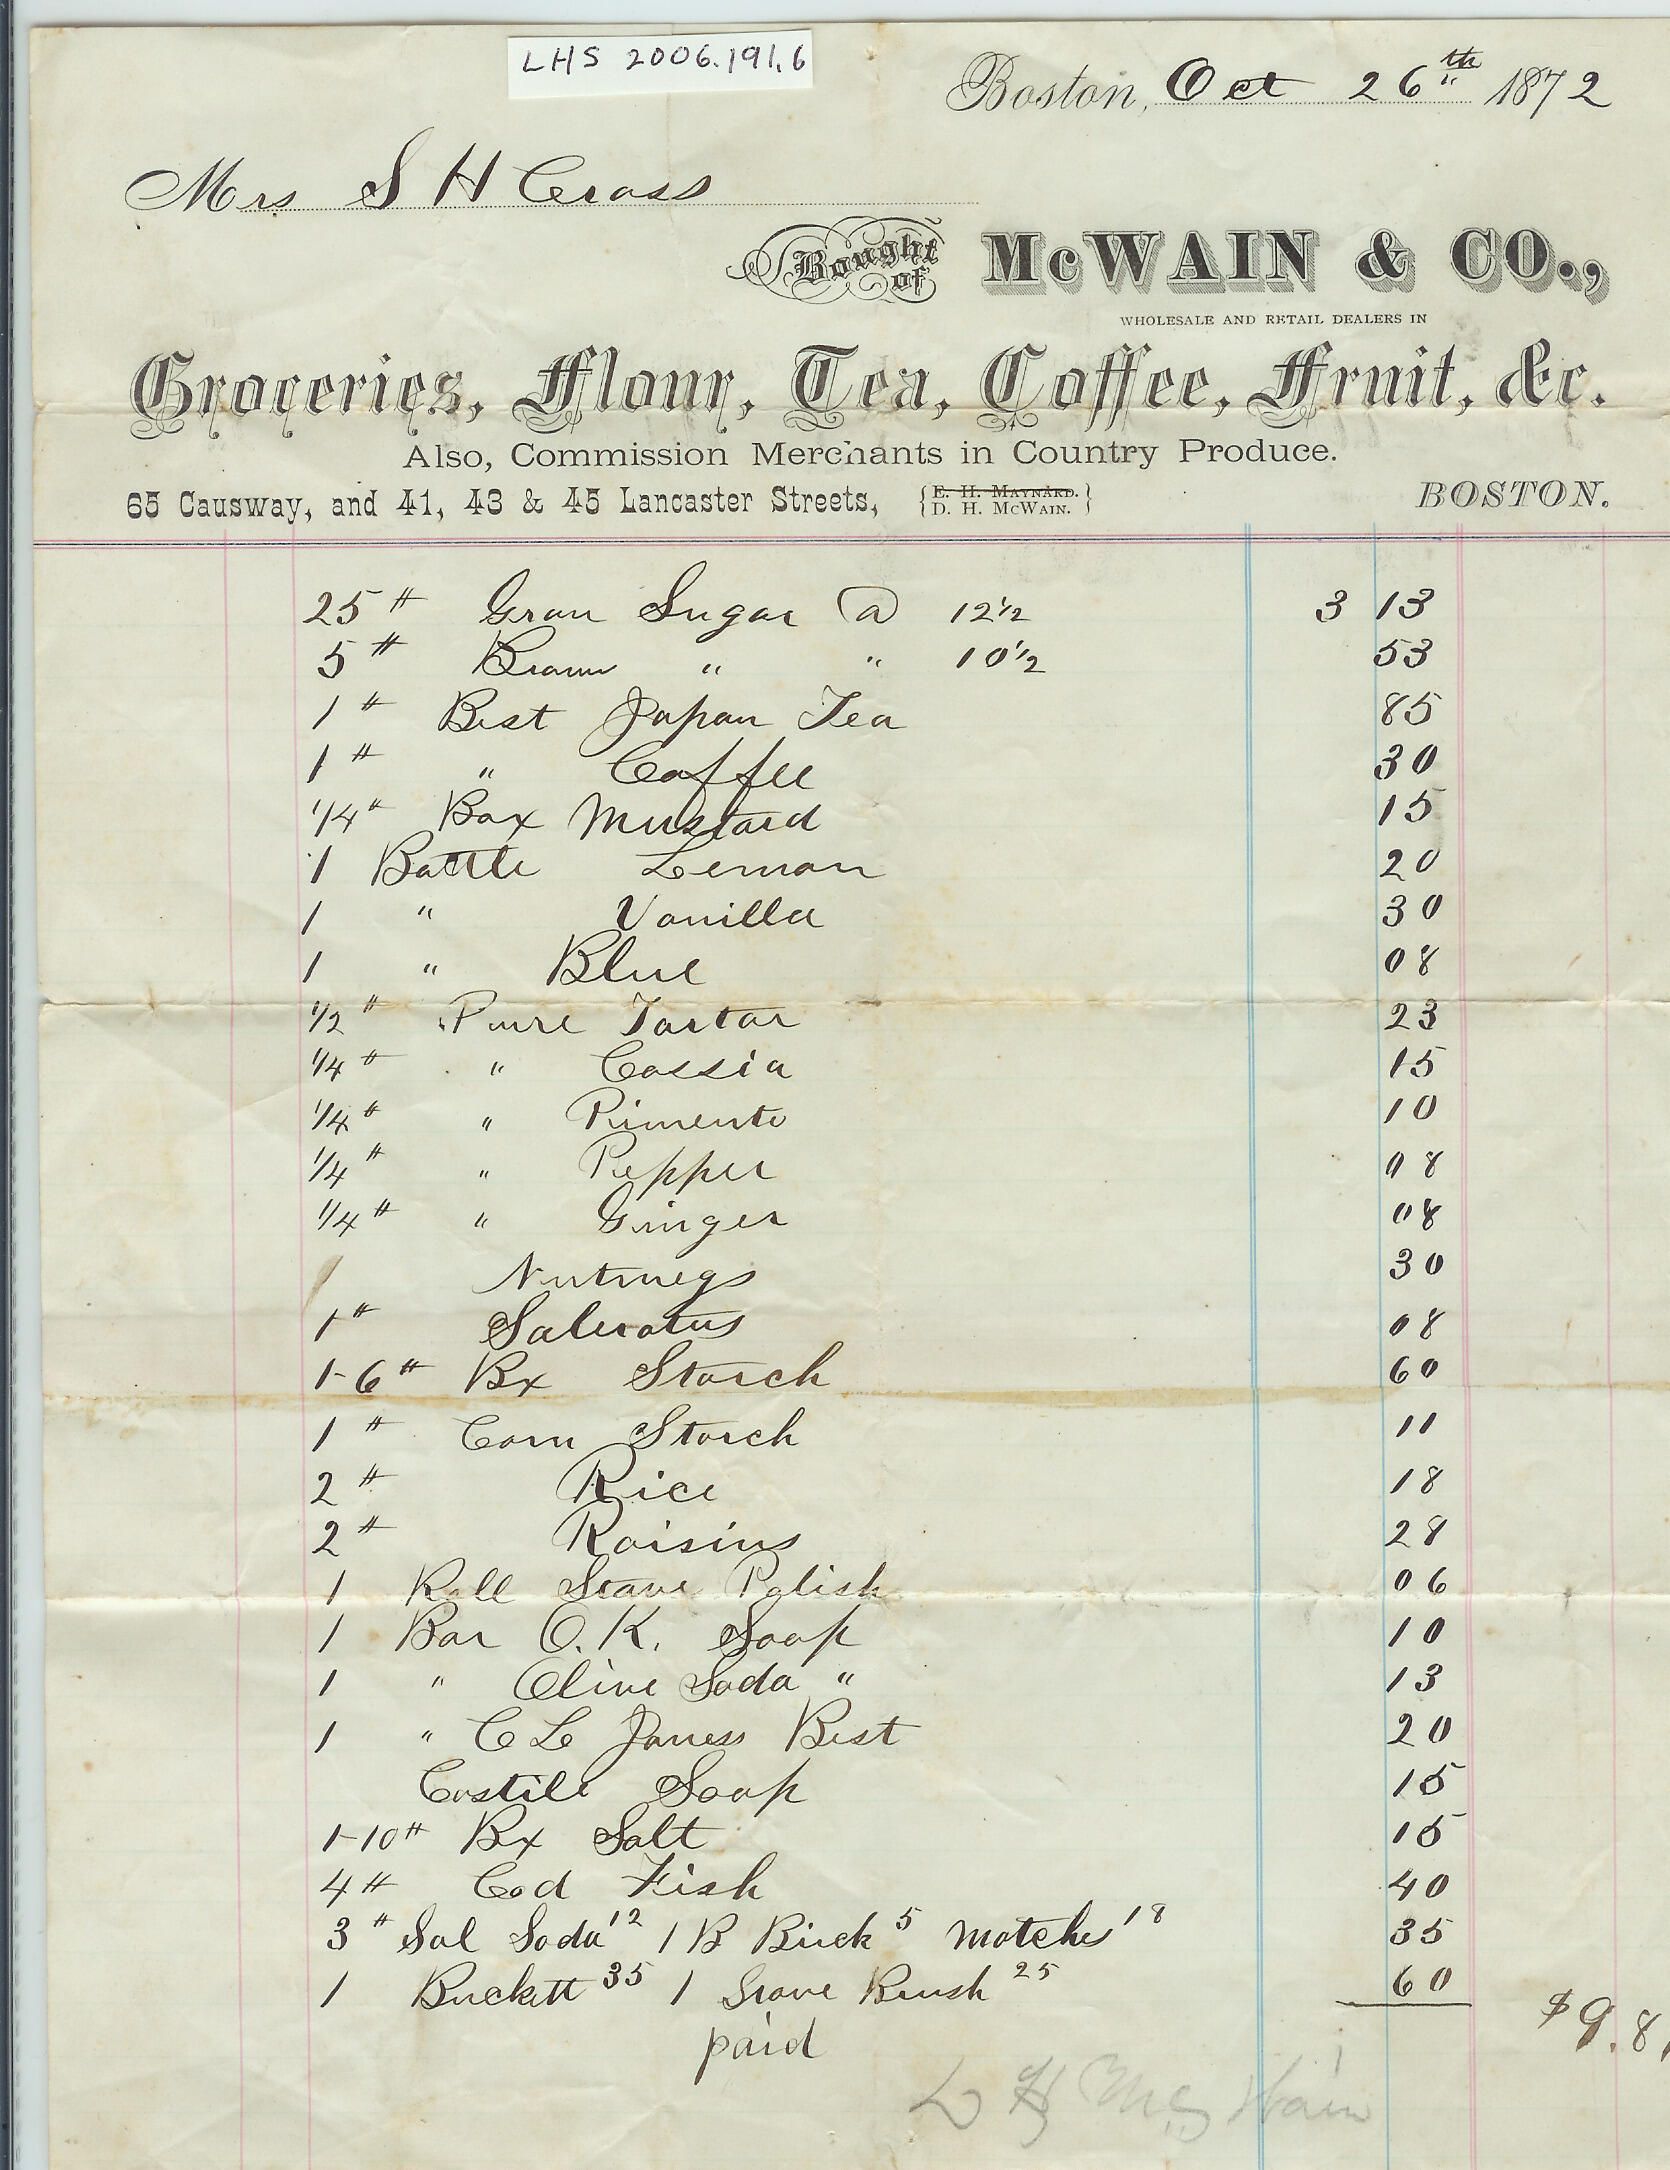 LHS 2006.191.6
Boston, Oct 26th 1872
Mrs S H Cross
Bought of McWAIN & CO.,
WHOLESALE AND RETAIL DEALERS IN
Groceries, Flour, Tea, Coffee, Fruit, &c.
Also, Commission Merchants in Country Produce.
65 Causway, and 41, 43 & 45 Lancaster Streets, { E. H. MAYNARD. D. H. McWAIN. } BOSTON.
25 # Gran Sugar @ 12 1/2 3 13
5 # Brown " " 10 1/2 53
1 # Best Japan Tea 85
1 # " Coffee 30
1/4 # Box Mustard 15
1 Bottle Lemon 20
1 " Vanilla 30
1 " Blue 08
1/2 # Pure Tartar 23
1/4 # " Cassia 15
1/4 # " Pimento 10
1/4 # " Pepper 08
1/4 # " Ginger 08
Nutmegs 30
1 # Saleratus 08
1-6 # Bx Starch 60
1 # Corn Starch 11
2 # Rice 18
2 # Raisins 28
1 Roll Stove Polish 06
1 Bar O.K. Soap 10
1 " Olive Soda " 13
1 " C L Jones Best 20
Castile Soap 15
1-10 # Bx Salt 15
4 # Cod Fish 40
3 # Sal Soda 12 1 B Brick 5 Matches 18 35
1 Buckett 35 1 Stove Brush 25 60
$9.81
paid
D H McWain